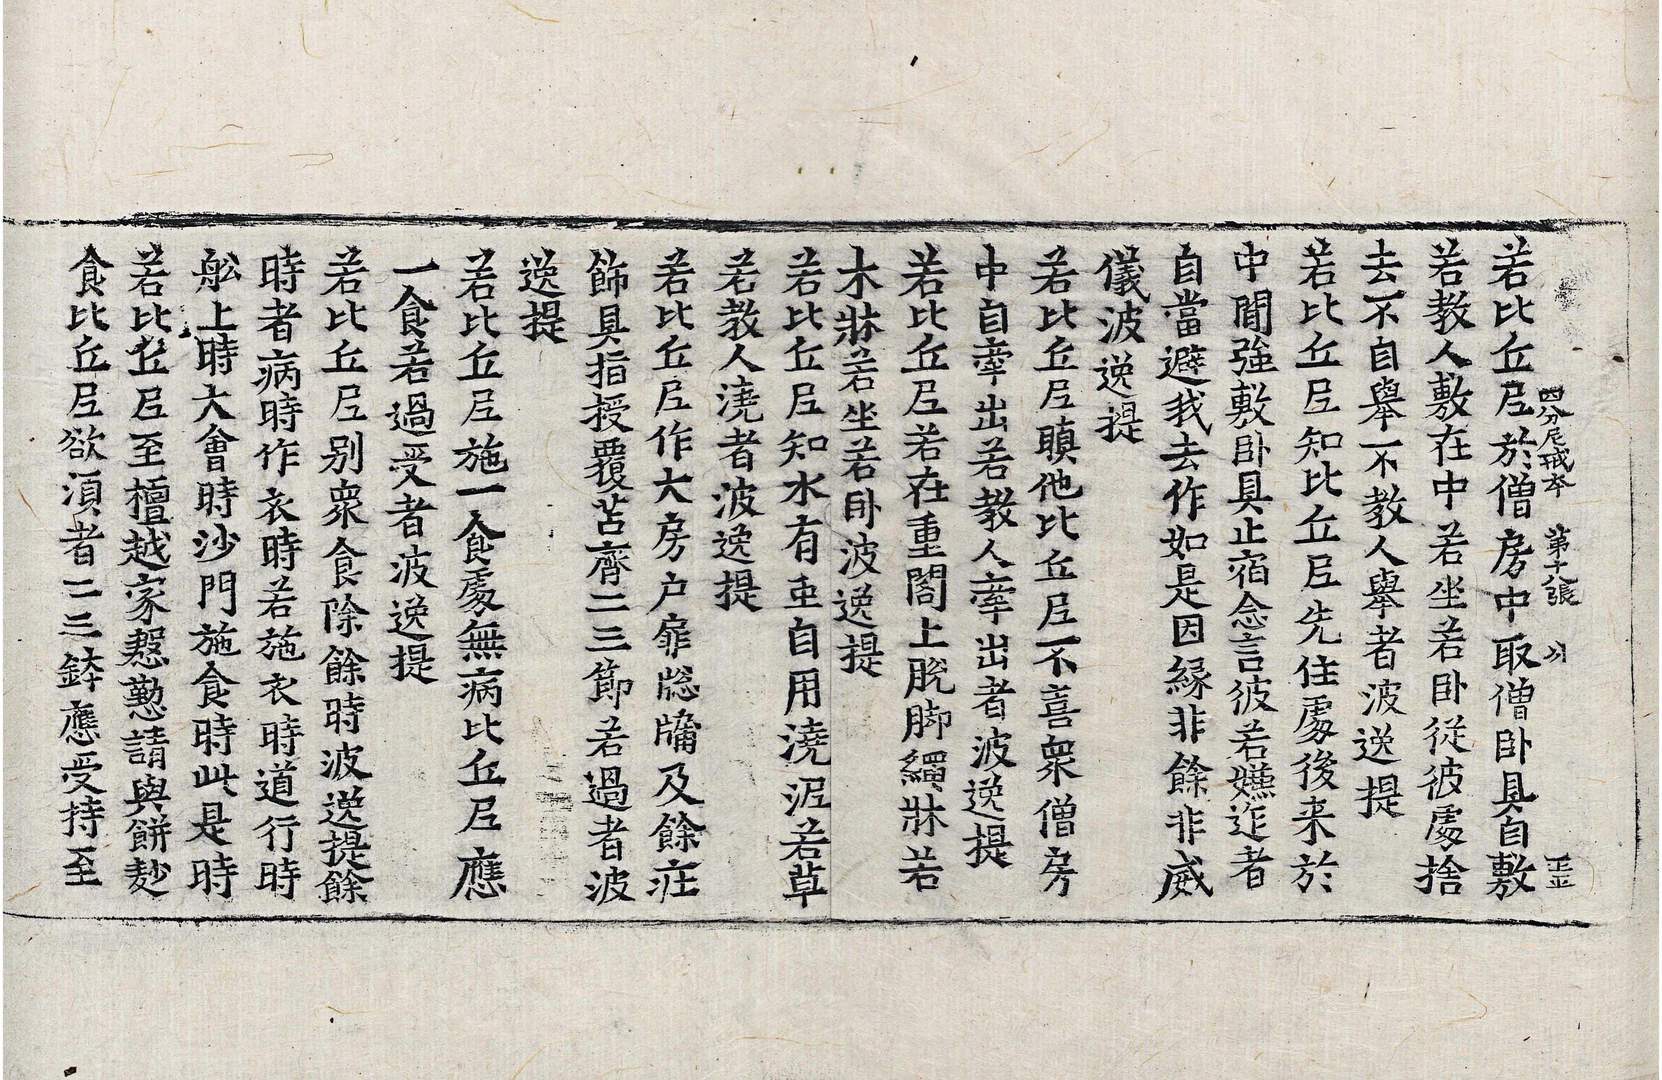 四分尼戒本 第十八張 㓝
若比丘尼於僧房中取僧卧具自敷
若教人敷在中若坐若卧從彼處捨
去不自舉不教人舉者波逸提
若比丘尼知比丘尼先住處後来於
中間強敷卧具止宿念言彼若嫌迮者
自當避我去作如是因緣非餘非威
儀波逸提
若比丘尼瞋他比丘尼不喜衆僧房
中自牽出若教人牽出者波逸提
若比丘尼若在重閣上脫脚繩牀若
木牀若坐若卧波逸提
若比丘尼知水有虫自用澆泥若草
若教人澆者波逸提
若比丘尼作大房户扉牕牖及餘莊
飾具指授覆苫齊二三節若過者波
逸提
若比丘尼施一食處無病比丘尼應
一食若過受者波逸提
若比丘尼别衆食除餘時波逸提餘
時者病時作衣時若施衣時道行時
舩上時大會時沙門施食時此是時
若比丘尼至檀越家慇懃請與餅麨
食比丘尼欲湏者二三鉢應受持至